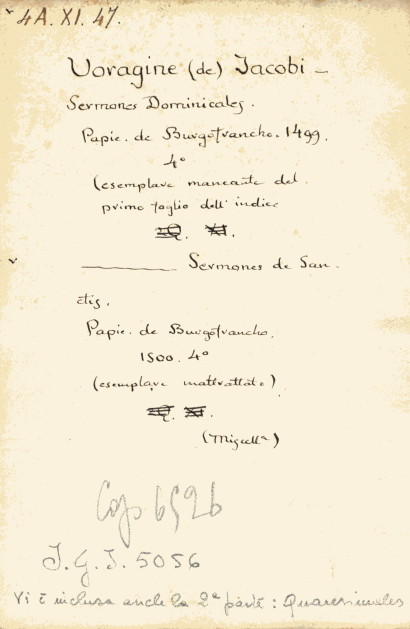 4A. XI. 47.
Voragine (de) Jacobi –
Sermones Dominicales.
Papie. de Burgofrancho. 1499.
4°
(esemplare mancante del
primo foglio dell' indice
Sermones de San
ctis.
Papie. de Burgofrancho.
1500. 4°
(esemplare maltrattato)
(Miscellª)
Cop 6526
I.G.I. 5056
Vi è inclusa anche la 2ª parte: Quaresimales